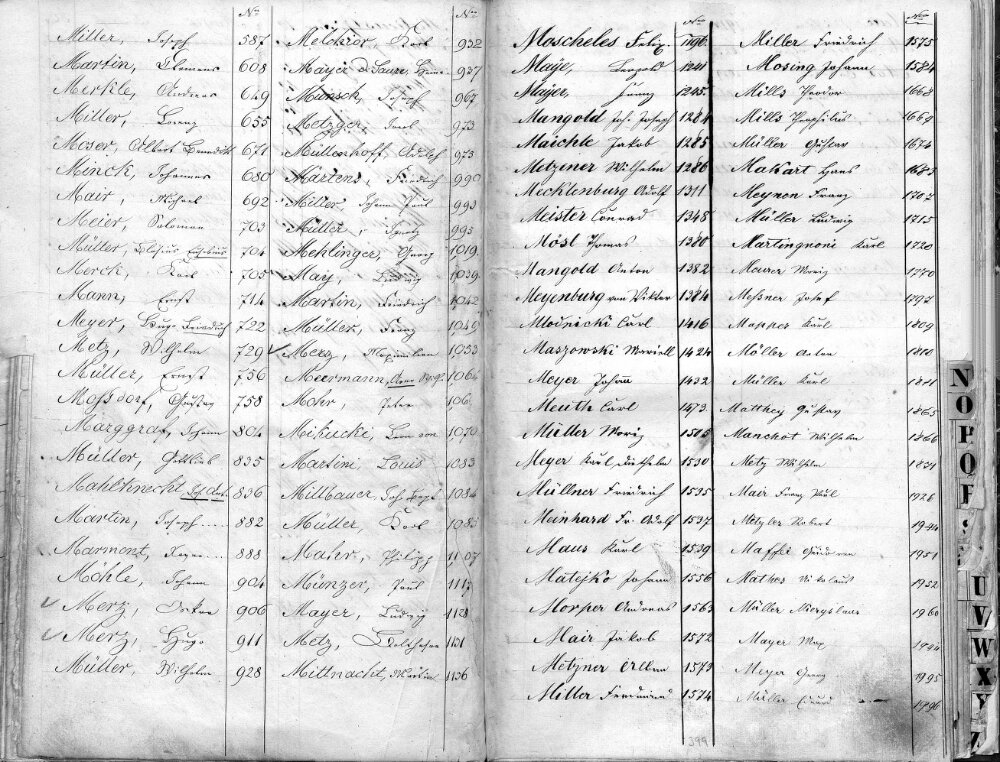 No
Miller, Joseph 587
Martin, Clemens 608
Merkle, Andreas 649
Miller, Lorenz 655
Moser, Albert Benedikt 671
Minck, Johannes 680
Mair, Michael 692
Meier, Salomon 703
Müller, 704
Merck, Karl 705
Mann, Ernst 714
Meyer, Hugo Friedrich 722
Metz, Wilhelm 729
Müller, Ernst 756
Mossdorf, Gustav 758
Marggraf, Johann 804
Müller, Gottlieb 835
Mahlknecht 836
Martin, Joseph 882
Marmont, 888
Möhle, Johann 904
Merz, Oskar 906
Merz, Hugo 911
Müller, Wilhelm 928
No
Melchior, Karl 932
Mayer 937
Munsch, Joseph 967
Metzger, 973
Müllenhoff, Adolf 973
Martens, Friedrich 990
Miller, Johann Paul 993
Müller, Ignatz 993
Mehlinger, Georg 1019
May, Ludwig 1039
Martin, Friedrich 1042
Müller, Franz 1049
Merz, Maximilian 1053
Meermann, 1064
Mohr, Peter 106
Mikucki, Leon von 1070
Martini, Louis 1083
Millbauer, 1084
Müller, Karl 1085
Mahr, Philipp 1107
Münzer, Paul 1117
Mayer, Ludwig 1128
Metz, Balthasar 1131
Mittnacht, Martin 1136
No
Moscheles Felix 1196
Maye, Leopold 1241
Majer, Franz 1245
Mangold Joh. Joseph 1284
Maichle Jakob 1285
Metzener Wilhelm 1286
Mecklenburg Adolf 1311
Meister Conrad 1348
Mösl Thomas 1380
Mangold Anton 1382
Meyenburg von Viktor 1384
Mlodnicki Carl 1416
Maszowski Marcell 1424
Meyer Johann 1432
Meuth Carl 1473
Müller Moriz 1505
Meyer Karl 1530
Müllner Friedrich 1535
Meinhard Fr. Adolf 1537
Maus Karl 1539
Matejko Johann 1556
Morper Andreas 1563
Mair Jakob 1572
Metzner 1573
Miller Ferdinand 1574
399
No
Miller Friedrich 1575
Mosing Johann 1584
Mills Theodor 1668
Mills Theophilus 1669
Müller Gustav 1674
Makart Hans 1683
Meynon Franz 1707
Müller Ludwig 1715
Martingnoni Karl 1720
Maurer Moriz 1770
Messner Josef 1797
Mapper Karl 1809
Möller Anton 1810
Müller Karl 1811
Matthey Gustav 1865
Manchot Wilhelm 1866
Metz Wilhelm 1834
Mair Franz Karl 1926
Metzler Robert 1944
Maffei 1951
Mathes Nikolaus 1952
Müller 1960
Mayer Max 1994
Meyer Georg 1995
Müller Eduard 1996
N
O
P
Q
R
S
U
V
W
X
Y
Z